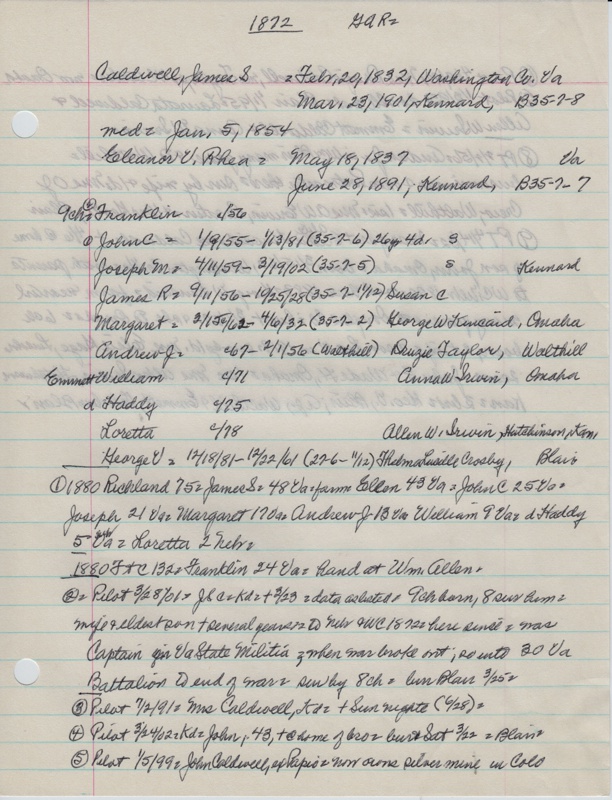 1872 GAR=
Caldwell, James S = Feb, 20, 1832, Washington Co. Va
Mar, 23, 1901, Kennard, B35-7-8
med = Jan, 5, 1854
Eleanor V. Rhea = May 18, 1837 Va
June 28, 1891, Kennard, B35-7-7
9ch = Franklin c/56
John C = 1/9/55 - 1/13/81 (35-7-6) 26y 4d. S
Joseph M = 4/11/59 - 3/19/02 (35-7-5) S Kennard
James R = 9/11/56 - 10/25/28 (35-7-1/12) Susan C
Margaret = 3/15/62 - 4/6/32 (35-7-2) George W Kincaid, Omaha
Andrew J = c67 - 2/1/56 (Walthill) Druzie Taylor, Walthill
Emmett William c/71 Anna W Irwin, Omaha
d Haddy c/75
Loretta c/78 Allen W. Irwin, Hutchinson, Kan,
George V = 12/18/81 - 12/22/61 (27-6-11/12) Thelma Lucille Crosby, Blair
① 1880 Richland 75 = James S = 48 Va = farm = Ellen 43 Va = John C 25 Va =
Joseph 21 Va = Margaret 17 Va = Andrew J 13 Va = William 9 Va = d Haddy
5 Va = Loretta 2 Neb =
1880 Ft C 132 = Franklin 24 Va = hand at Wm Allen =
② = Pilot 3/28/01 = J S C = Kd = + 3/23 = data as listed = 9 ch born, 8 sur him =
wife & eldest son + several years = to Neb & WC 1872 = here since = was
Captain in Va State Militia & when war broke out; so into 30 Va
Battalion to end of war = sur by 8 ch = bur Blair 3/25 =
③ Pilot 7/2/91 = Mrs Caldwell, Kd = + Sun night (6/28) =
④ Pilot 3/2402 = Kd = John, 43, + @ home of bro = bur Sat 3/22 = Blair =
⑤ Pilot 1/5/99 = John Caldwell, ex Papio = now owns silver mine in Colo